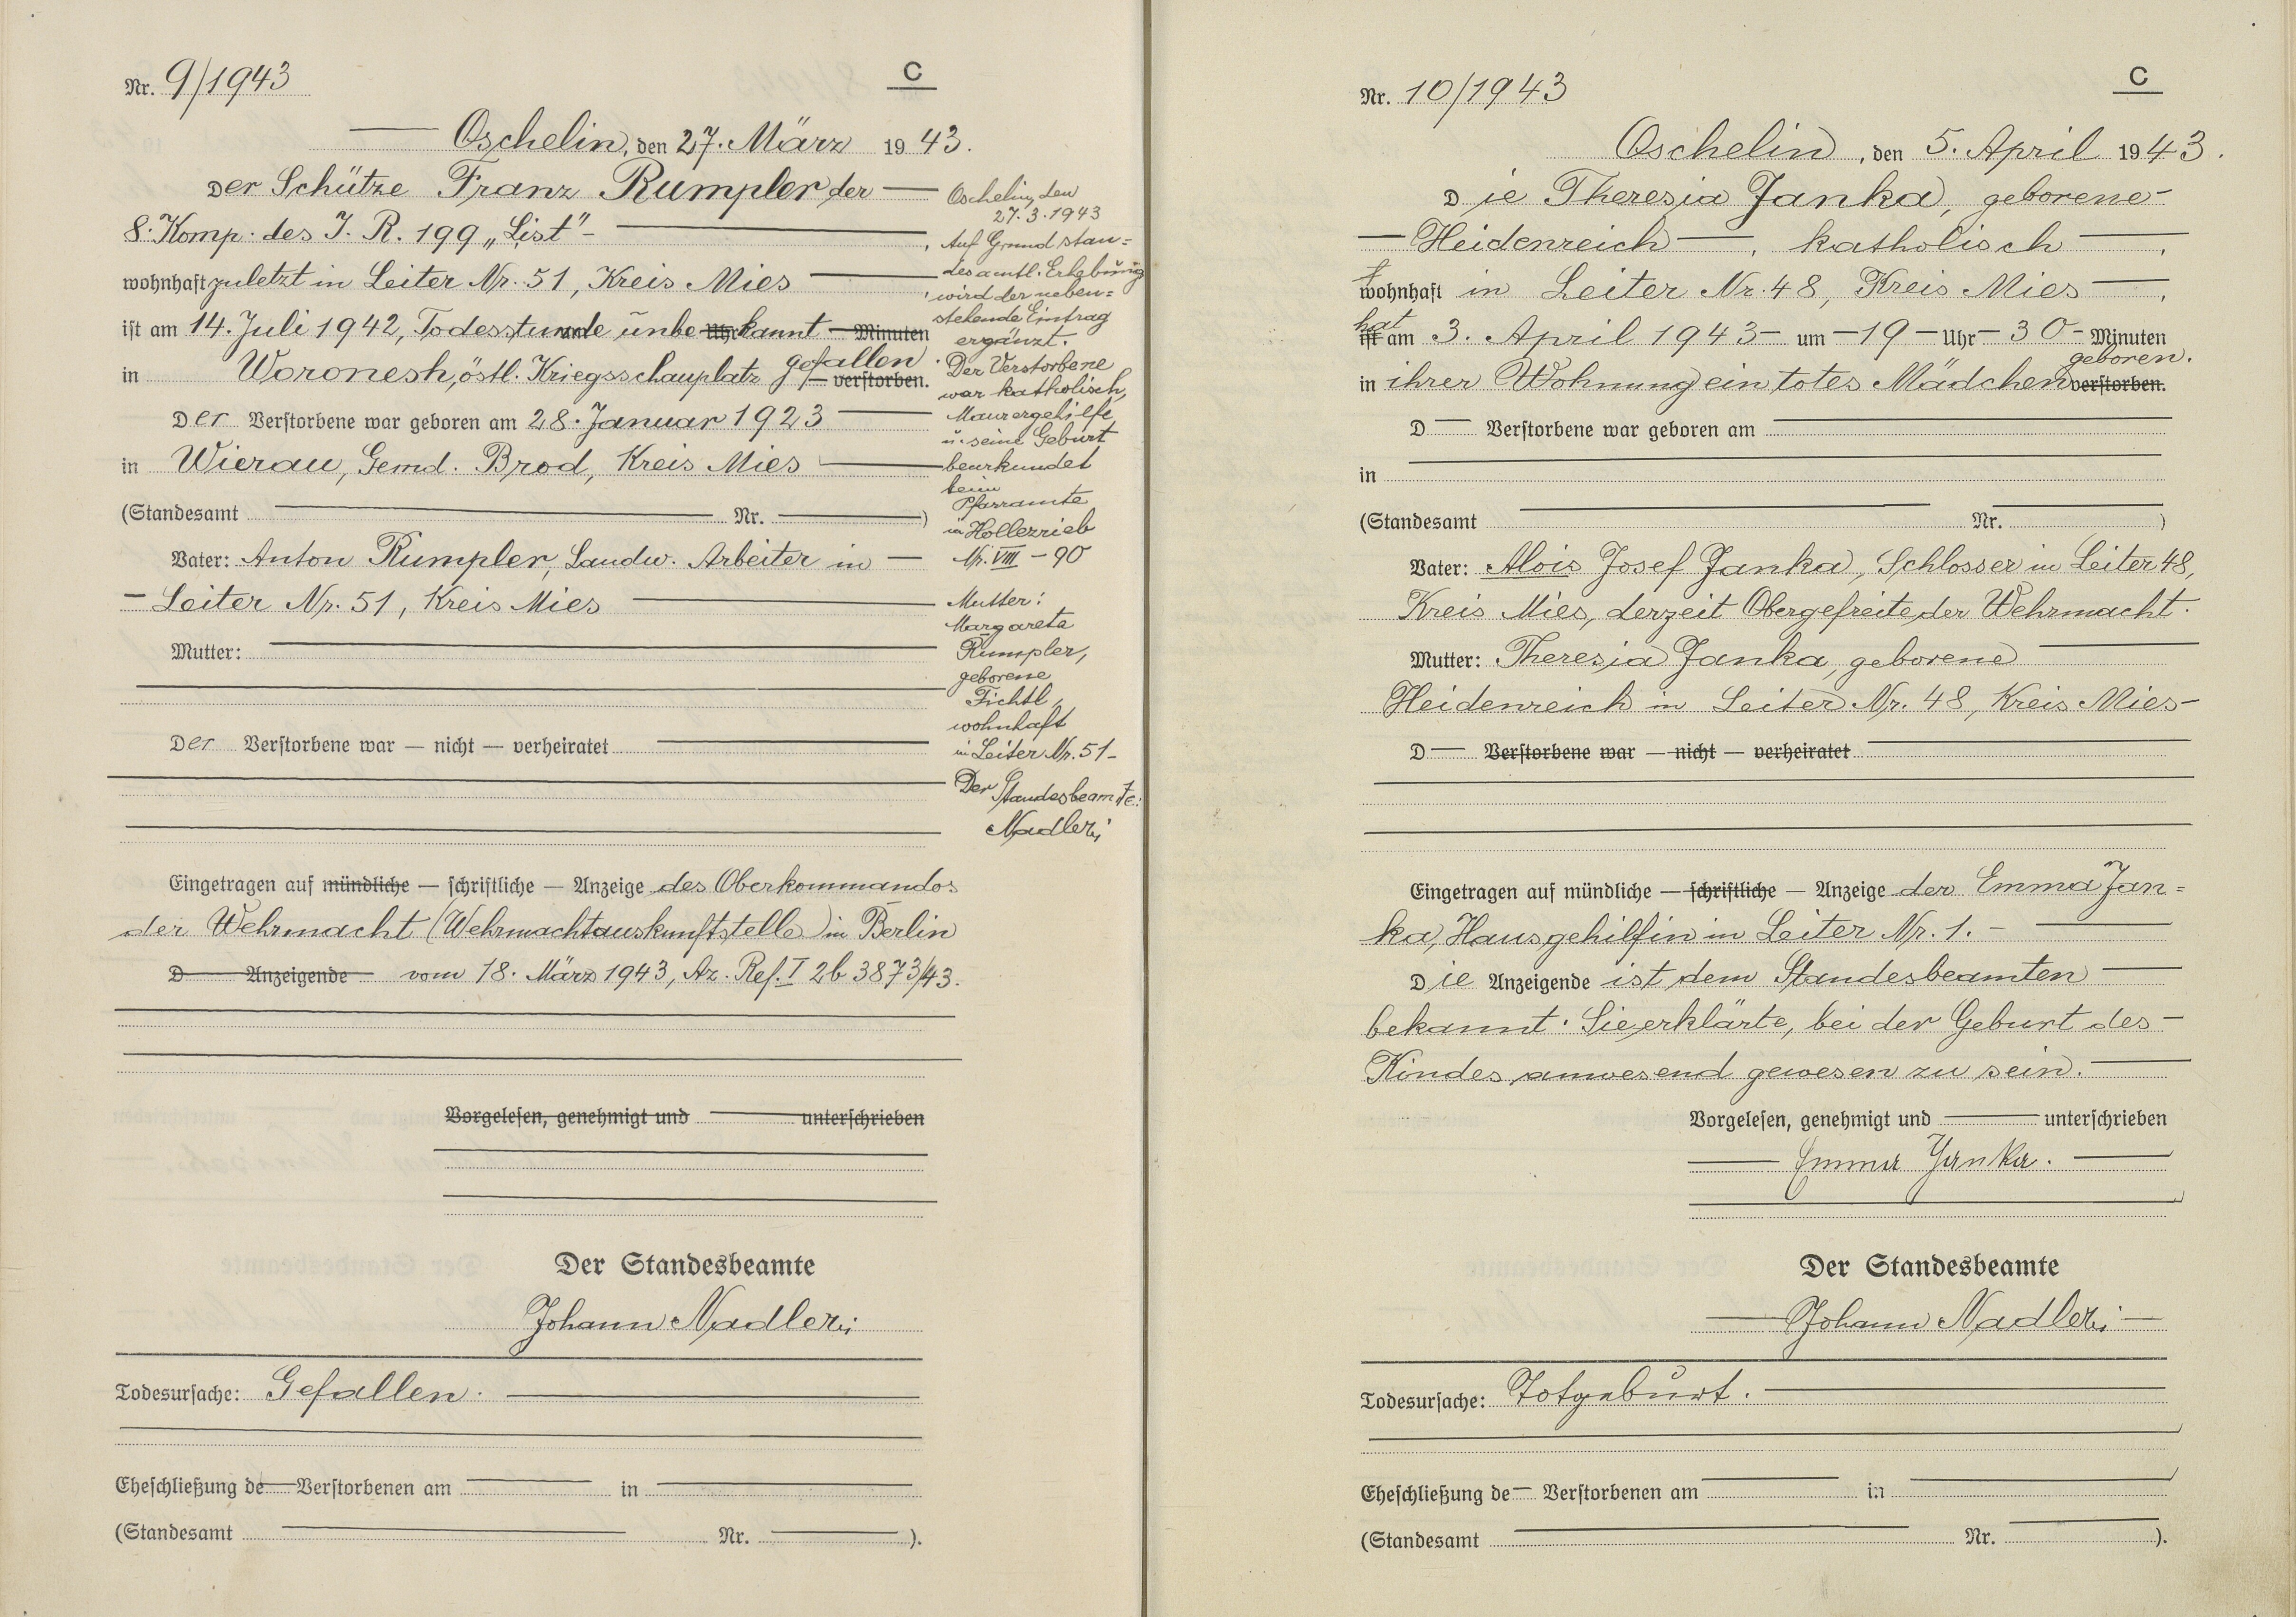 Nr. 9/1943
C
Oschelin, den 27. März 1943.
Der Schütze Franz Rumpler der
8. Komp. des J. R. 199 „List"
wohnhaft zuletzt in Leiter Nr. 51, Kreis Mies
ist am 14. Juli 1942, Todesstunde unbe Uhr kannt Minuten
in Woronesh, östl. Kriegsschauplatz gefallen verstorben.
Der Verstorbene war geboren am 28. Januar 1923
in Wierau, Gemd. Brod, Kreis Mies
(Standesamt Nr. )
Vater: Anton Rumpler, Landw. Arbeiter in
Leiter Nr. 51, Kreis Mies
Mutter:
Der Verstorbene war — nicht — verheiratet
Oschelin, den
27.3.1943
Auf Grund stan=
desamtl. Erhebung
wird der neben=
stehende Eintrag
ergänzt.
Der Verstorbene
war katholisch,
Maurergehilfe
u. seine Geburt
beurkundet
beim
Pfarramte
in Hollezrieb
Nr. VIII – 90
Mutter:
Margareta
Rumpler,
geborene
Fichtl,
wohnhaft
in Leiter Nr. 51 –
Der Standesbeamte:
Nadler
Eingetragen auf mündliche — schriftliche — Anzeige des Oberkommandos
der Wehrmacht (Wehrmachtauskunftstelle) in Berlin
D Anzeigende vom 18. März 1943, Az. Ref. I 2b 3873/43.
Vorgelesen, genehmigt und unterschrieben
Der Standesbeamte
Johann Nadler
Todesursache: Gefallen.
Eheschließung de Verstorbenen am in
(Standesamt Nr. ).
Nr. 10/1943
C
Oschelin, den 5. April 1943.
Die Theresia Janka, geborene
Heidenreich, katholisch,
wohnhaft in Leiter Nr. 48, Kreis Mies,
hat
ist am 3. April 1943 – um – 19 – Uhr – 30 – Minuten
geboren.
in ihrer Wohnung ein totes Mädchen verstorben.
D Verstorbene war geboren am
in
(Standesamt Nr. )
Vater: Alois Josef Janka, Schlosser in Leiter 48,
Kreis Mies, derzeit Obergefreite der Wehrmacht.
Mutter: Theresia Janka, geborene
Heidenreich in Leiter Nr. 48, Kreis Mies –
D Verstorbene war — nicht — verheiratet
Eingetragen auf mündliche — schriftliche — Anzeige der Emma Jan=
ka, Hausgehilfin in Leiter Nr. 1. –
Die Anzeigende ist dem Standesbeamten
bekannt. Sie erklärte, bei der Geburt des
Kindes anwesend gewesen zu sein.
Vorgelesen, genehmigt und unterschrieben
Emma Janka.
Der Standesbeamte
Johann Nadler
Todesursache: Totgeburt.
Eheschließung de Verstorbenen am in
(Standesamt Nr. ).